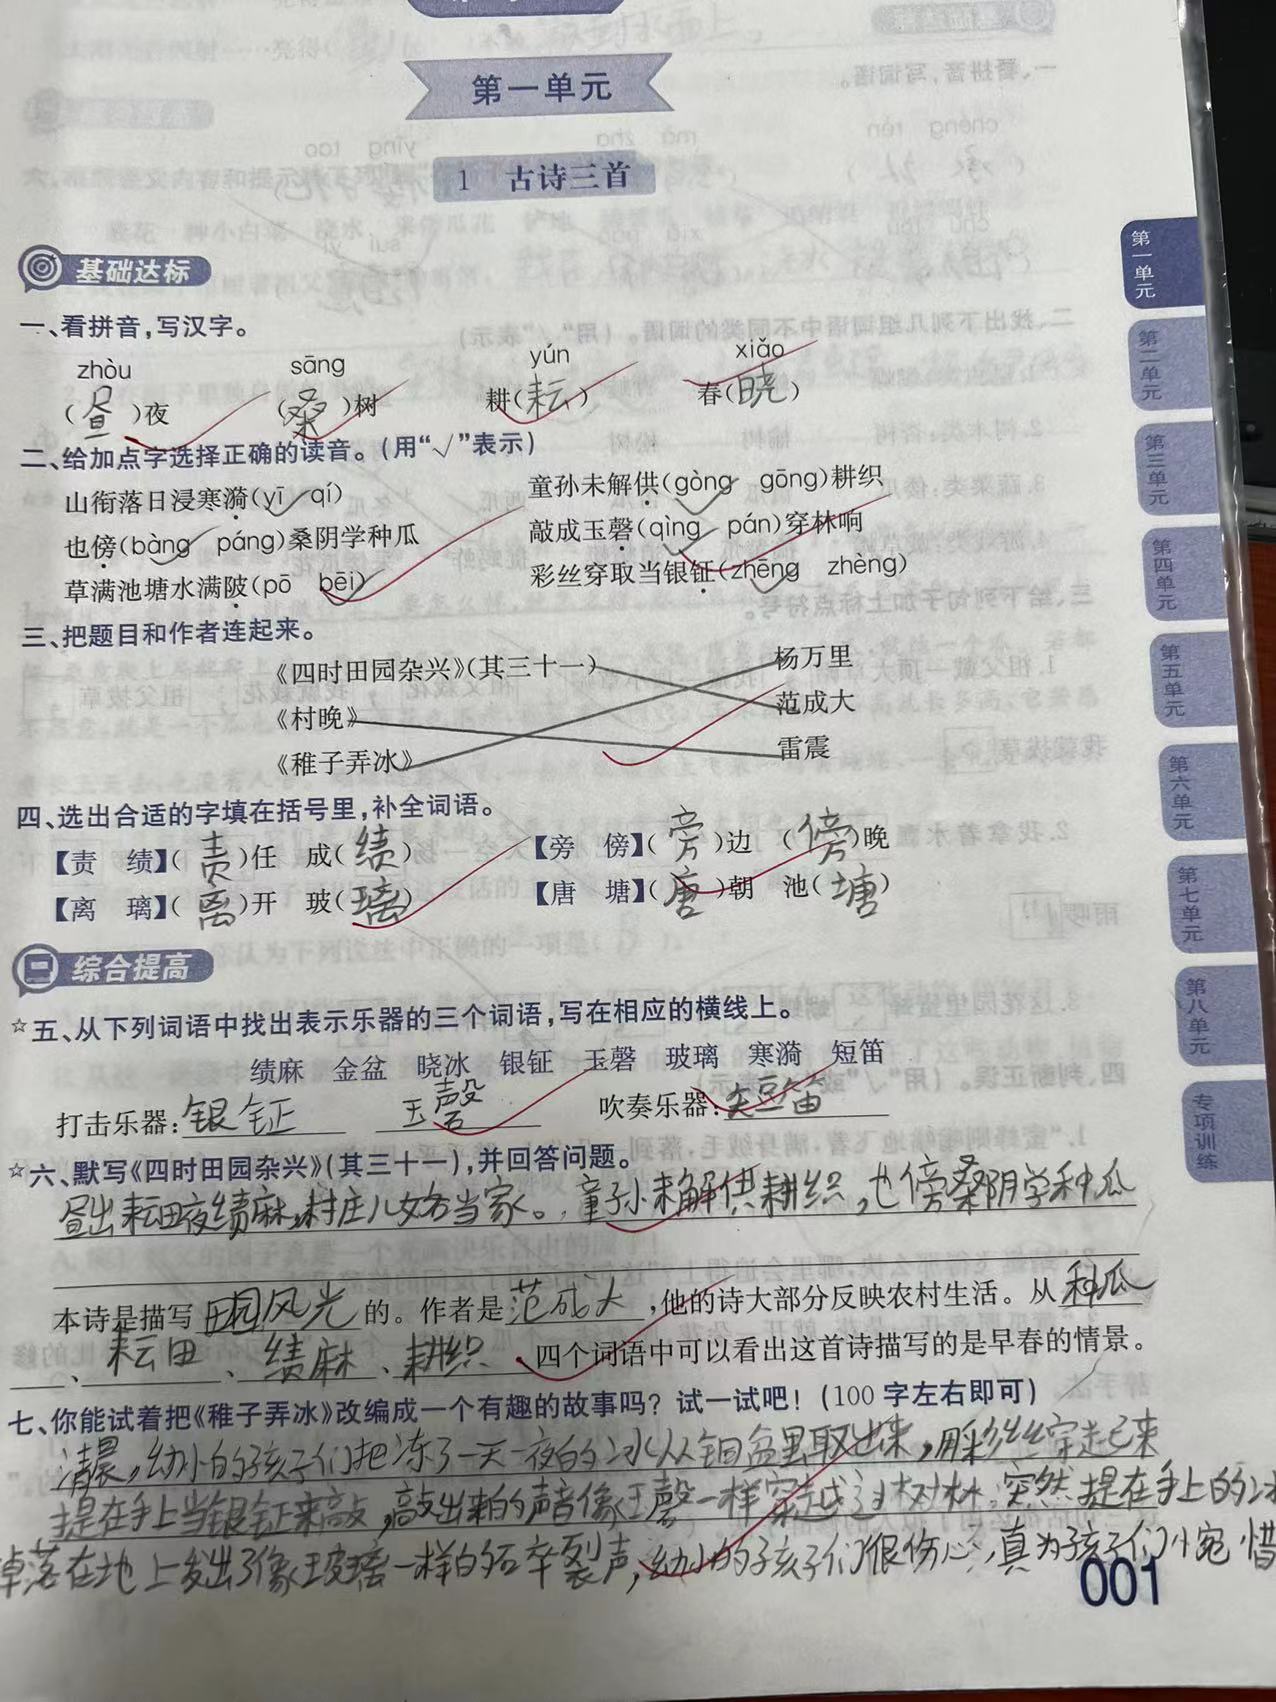 第一单元
1 古诗三首
基础达标
一、看拼音,写汉字。
zhòu sāng yún xiǎo
(昼)夜 (桑)树 耕(耘) 春(晓)
二、给加点字选择正确的读音。(用“√”表示)
山衔落日浸寒漪(yī√ qí) 童孙未解供(gòng√ gōng)耕织
也傍(bàng√ páng)桑阴学种瓜 敲成玉磬(qìng√ pán)穿林响
草满池塘水满陂(pō bēi√) 彩丝穿取当银钲(zhēng√ zhèng)
三、把题目和作者连起来。
《四时田园杂兴》(其三十一) 杨万里
《村晚》 范成大
《稚子弄冰》 雷震
四、选出合适的字填在括号里,补全词语。
【责 绩】(责)任 成(绩) 【旁 傍】(旁)边 (傍)晚
【离 璃】(离)开 玻(璃) 【唐 塘】(唐)朝 池(塘)
综合提高
☆五、从下列词语中找出表示乐器的三个词语,写在相应的横线上。
绩麻 金盆 晓冰 银钲 玉磬 玻璃 寒漪 短笛
打击乐器:银钲 玉磬 吹奏乐器:短笛
☆六、默写《四时田园杂兴》(其三十一),并回答问题。
昼出耘田夜绩麻,村庄儿女各当家。童孙未解供耕织,也傍桑阴学种瓜
本诗是描写田园风光的。作者是范成大,他的诗大部分反映农村生活。从种瓜
、耘田、绩麻、耕织 四个词语中可以看出这首诗描写的是早春的情景。
七、你能试着把《稚子弄冰》改编成一个有趣的故事吗?试一试吧!(100字左右即可)
清晨,幼小的孩子们把冻了一天一夜的冰从铜盆里取出来,用彩丝穿起来
提在手上当银钲来敲,敲出来的声音像玉磬一样穿越过树林。突然提在手上的冰
掉落在地上发出了像玻璃一样的碎裂声,幼小的孩子们很伤心,真为孩子们惋惜
001
第一单元
第二单元
第三单元
第四单元
第五单元
第六单元
第七单元
第八单元
专项训练